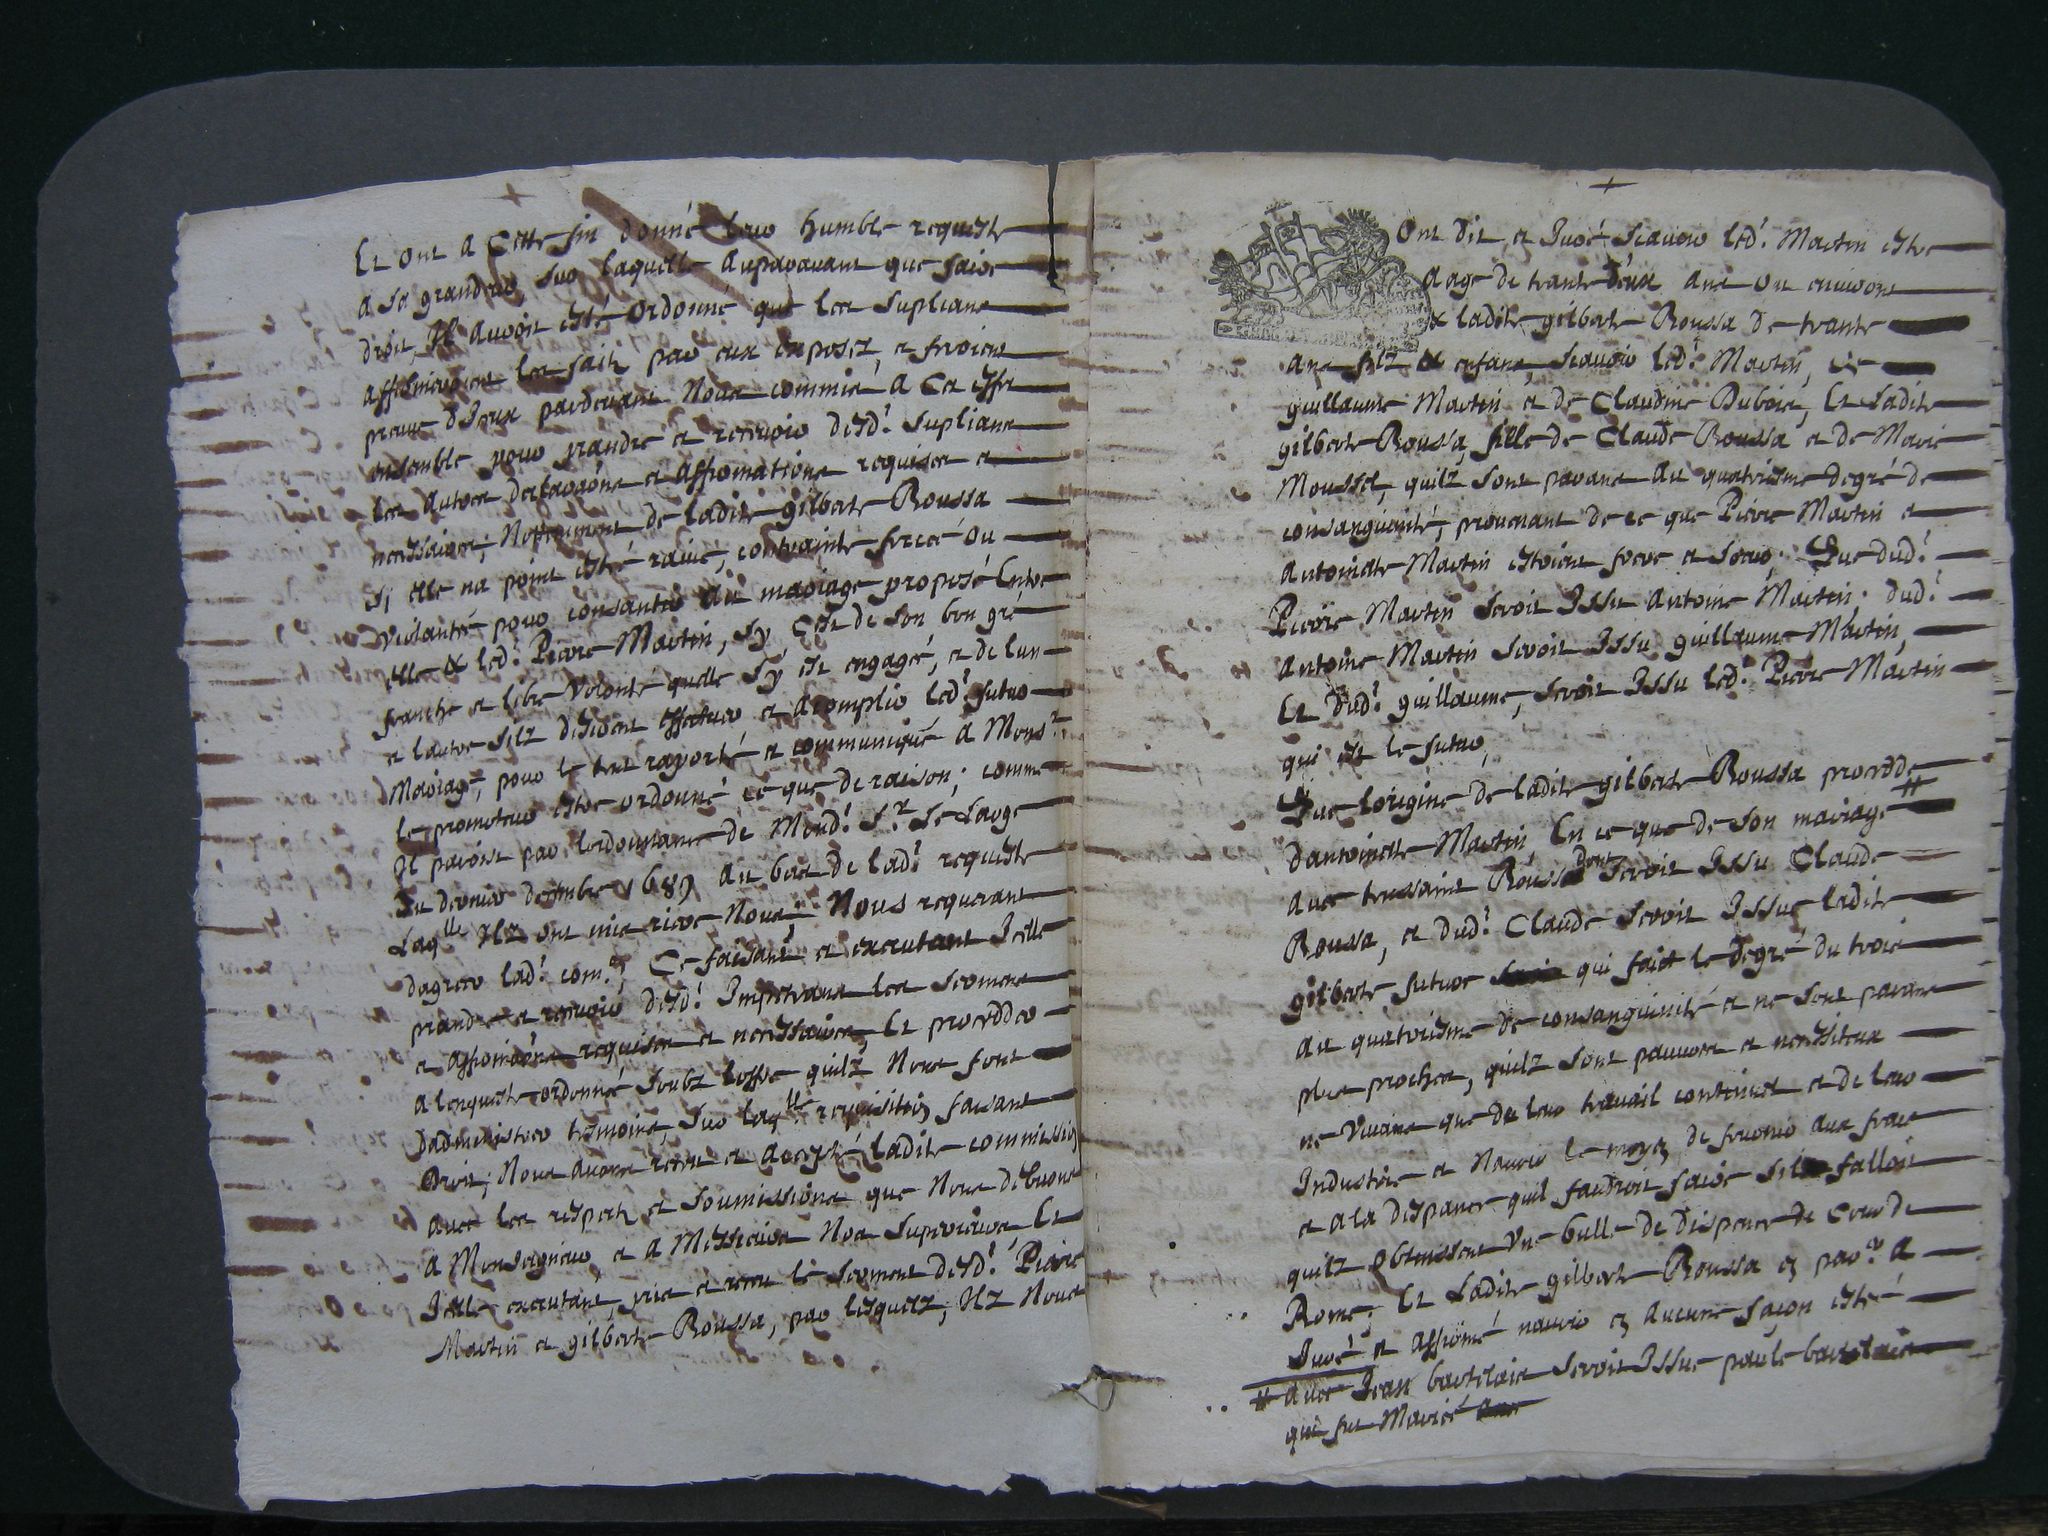 Et ont a Cette fin donné leur humble requeste
a sa grandeur, sur laquelle auparavant que faire
droit, Il auroit esté ordonné que les suplians
affirmeroient les faitz par eux exposez, et feroient
preuve d'Iceux pardevant Nous commis a Ce effet
ensemble pour prandre et recevoir desd.t suplians
les autres declaraõns et affirmations requises et
necessaires, Nottemment de ladite gilberte Roussa
sy elle na point esté ravie, contrainte forcée ou
violantée pour consantir au mariage proposé Entre
elle & led.t Pierre Martin, sy C'est de son bon gré
franche et libre volonté quelle s'y est engagée, et de l'un
et lautre silz desirent effectuer et acomplir led.t futur
Mariage, pour le tout raporté et communiqué a Mons.r
le promoteur estre ordonné ce que de raison; comme
Il paroist par lordonnance de Mond.t S.r De Large
Du dernier decembre 1689 au bas de lad.t requeste
Laq.lle Ilz ont mis rieve Nous; Nous requerant
dagreer lad.t com.on, Ce faisant et executant Icelle
prandre et recevoir desd.t Impetrans les sermens
et affirmaõns requises et necessaires, Et procedder
a lenqueste ordonnée soubz loffre quilz Nous font
Dadministrer tesmoins, sur laq.lle requisition faisant
Droit; Nous avons receu et accepté ladite commission
avec les respectz et soumissions que Nous debvons
a Monseigneur, et a Messieurs Nos superieurs Et
Icelle executant, pris et receu le serment desd.t Pierre
Martin et gilberte Roussa, par lesquelz, Ilz Nous
Ont Dit, et Juré scavoir led.t Martin estre
aage de trante deux ans ou environs
& ladite gilberte Roussa de trante
ans filz et enfans, scavoir led.t Martin, de
guillaume Martin et de Claudine Dubois, Et ladite
gilberte Roussa fille de Claude Roussa et de Marie
Mousset, quilz sont parans au quatriesme degré de
consanguinité, provenant de ce que Pierre Martin et
Antoinette Martin estoient frere et soeur; Que dud.t
Pierre Martin seroit Issu Antoine Martin; dud.t
Antoine Martin seroit Issu guillaume Martin,
Et Dud.t guillaume, seroit Issu led.t Pierre Martin
qui est le futur,
Que lorigine de ladite gilberte Roussa procedde
dantoinette Martin, En ce que de son mariage #
avec toussaint Roussa dont seroit Issu Claude
Roussa, et dud.t Claude seroit Issue ladite
gilberte future qui faict le degré du trois
au quatriesme de consanguinité et ne sont parans
plus proches, quilz sont pauvres et necessiteux
ne vivans que de leur travail continuel et de leur
Industrie et Navoir le moyen de fournir aux frais
et a la despance quil faudroit faire sil falloit
quilz obteinssent une bulle de dispence de Cour de
Rome; Et Ladite gilberte Roussa en par.er A
Juré et affirmé navoir en aucune façon esté
# avec Jean bartelais seroit Issue paule bartelais
qui fut Mariée